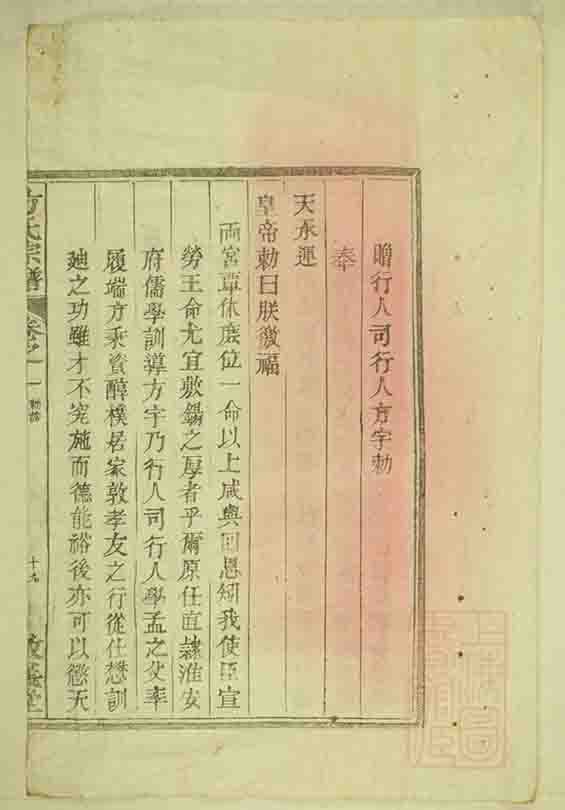 贈行人司行人方宇勅
奉
天承運
皇帝勅曰朕徼福
兩宮覃休庶位一命以上咸與回恩矧我使臣宣
勞王命尤宜敷錫之厚者乎爾原任直隸淮安
府儒學訓導方宇乃行人司行人學孟之父率
履端方秉資醇樸居家敦孝友之行從仕懋訓
廸之功雖才不究施而德能裕後亦可以慰天
方氏宗譜
卷之一
十九